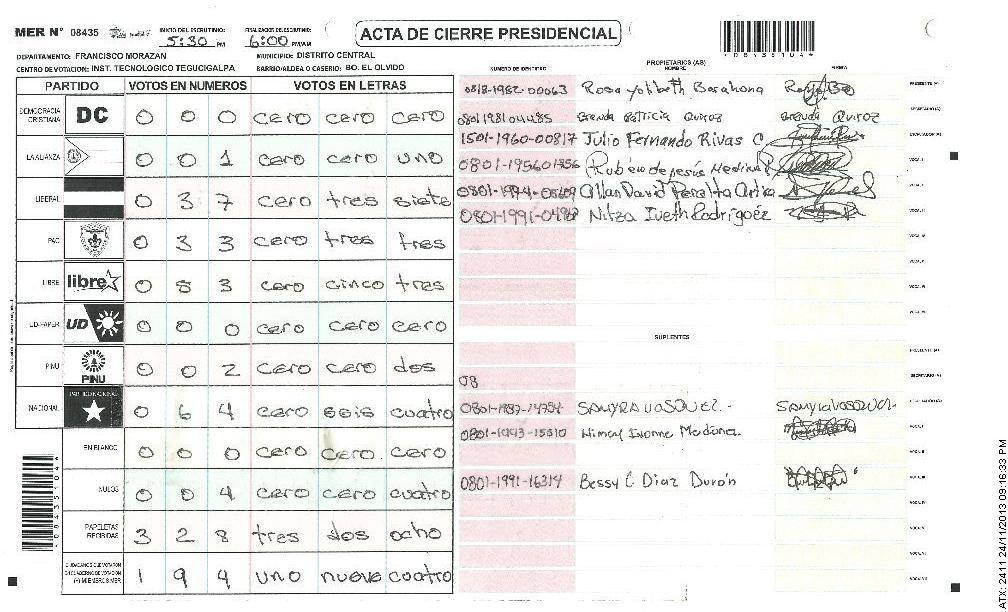 MER N° 08435
INICIO DEL ESCRUTINIO: 5:30 PM
FINALIZACION DEL ESCRUTINIO: 6:00 PM/AM
ACTA DE CIERRE PRESIDENCIAL
DEPARTAMENTO: FRANCISCO MORAZAN
MUNICIPIO: DISTRITO CENTRAL
CENTRO DE VOTACION: INST. TECNOLOGICO TEGUCIGALPA
BARRIO/ALDEA O CASERIO: BO. EL OLVIDO
PARTIDO VOTOS EN NUMEROS VOTOS EN LETRAS
DEMOCRACIA CRISTIANA DC 0 0 0 cero cero cero
LA ALIANZA 0 0 1 cero cero uno
LIBERAL 0 3 7 cero tres siete
PAC 0 3 3 cero tres tres
LIBRE libre 0 5 3 cero cinco tres
UD-FAPER UD 0 0 0 cero cero cero
PINU PINU 0 0 2 cero cero dos
NACIONAL PARTIDO NACIONAL 0 6 4 cero seis cuatro
EN BLANCO 0 0 0 cero cero. cero
NULOS 0 0 4 cero cero cuatro
PAPELETAS RECIBIDAS 3 2 8 tres dos ocho
CIUDADANOS QUE VOTARON EN CUADERNO DE VOTACION (+) MIEMBROS MER 1 9 4 uno nueve cuatro
*08435104*
PROPIETARIOS (AS)
NUMERO DE IDENTIDAD NOMBRE FIRMA
0818-1982-00063 Rosa Yolibeth Barahona PRESIDENTE (A)
0801 1981 04485 Brenda Patricia Quiroz Brenda Quiroz SECRETARIO (A)
1501-1960-00817 Julio Fernando Rivas C ESCRUTADOR (A)
0801-1956 Rubén de jesús Medina VOCAL I
0801-1994- Allan David Peralta VOCAL II
0801-1991- Nitza Iveth Rodriguéz VOCAL III
VOCAL IV
VOCAL V
VOCAL VI
VOCAL VII
SUPLENTES
PRESIDENTE (A)
08 SECRETARIO (A)
0801-1987-14754 SAMYRA VASQUEZ.- ESCRUTADOR (A)
0801-1993-15510 Ivonne VOCAL I
VOCAL II
0801-1991-16314 Bessy C Diaz Durón VOCAL III
VOCAL IV
VOCAL V
VOCAL VI
VOCAL VII
ATX: 2411 24/11/2013 09:16:33 PM